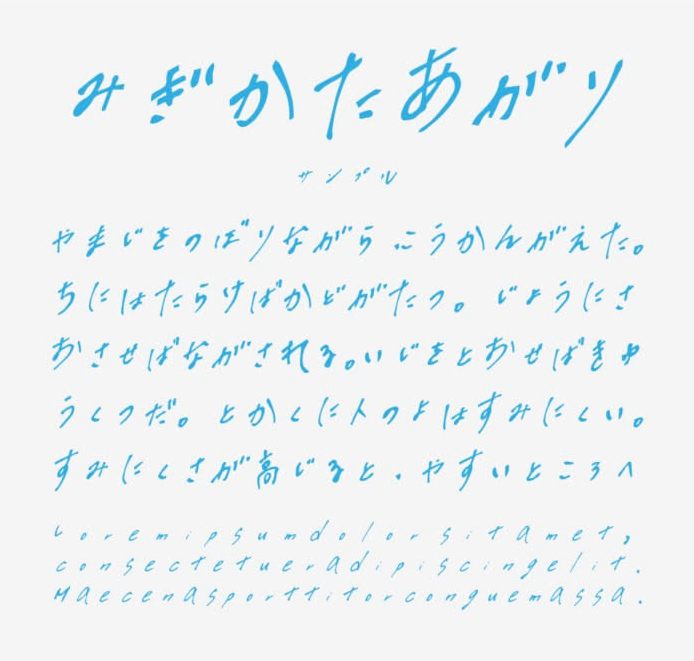 みぎかたあがり
サンプル
やまじをのぼりながら こうかんがえた。
ちにはたらけばかどがたつ。 じょうにさ
おさせばながされる。いじをとおせばきゅ
うくつだ。 とかくに人のよはすみにくい。
すみにくさが高じると、やすいところへ
Loremipsumdolorsitamet,
consectetueradipiscingelit.
Maecenasporttitorconguemassa.